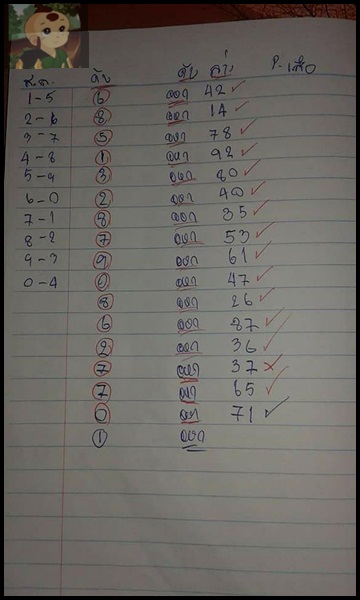 ส.ต. ดับ ดับ ล่าง P. เสือ
1-5 6 ออก 42 ✓
2-6 8 ออก 14 ✓
3-7 5 ออก 78 ✓
4-8 1 ออก 92 ✓
5-9 3 ออก 80 ✓
6-0 2 ออก 40 ✓
7-1 8 ออก 35 ✓
8-2 7 ออก 53 ✓
9-3 9 ออก 61 ✓
0-4 0 ออก 47 ✓
8 ออก 26 ✓
6 ออก 87 ✓
2 ออก 36 ✓
7 ออก 37 ✗
7 ออก 65 ✓
0 ออก 71 ✓
1 ออก